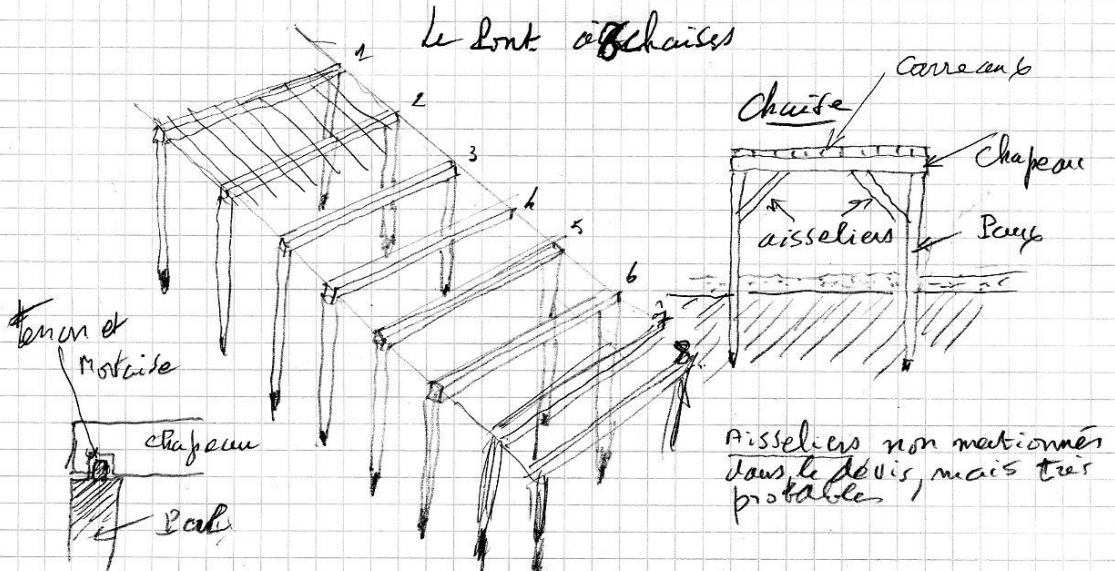 Le Pont à 8 chaises
1
2
3
4
5
6
7
8
Carreaux
Chaise
Chapeau
aisseliers
Paux
Tenon et
Mortaise
chapeau
Pal
Aisseliers non mentionnés
dans le dévis, mais très
probables